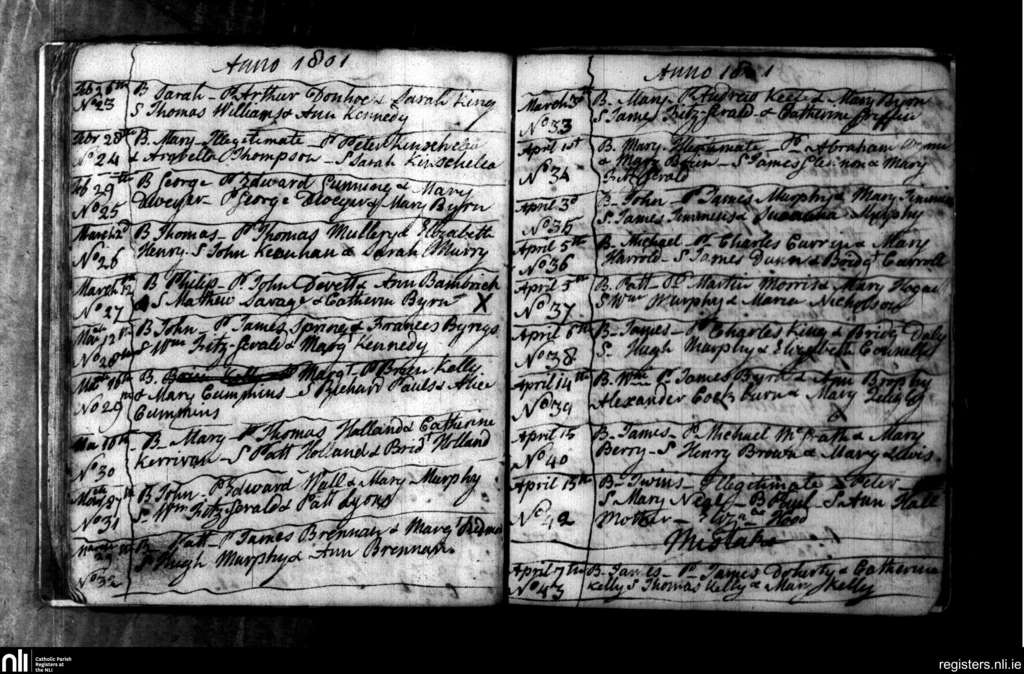 Anno 1801
Feb 26th B Sarah - P Arthur Donhoe & Sarah King
No 23 S Thomas Williams & Ann Kennedy
Febr 28th B. Mary Illegitimate - P Peter Kinschelea
No 24 & Arabella Thompson - S Sarah Kinschelea
Feb 29th B George P Edward Cummins & Mary
No 25 P George & Mary Byrn
March 2d B Thomas - P Thomas Mullery & Elizabeth
No 26 Henry - S John & Sarah Murry
March 12 B Philip - P John Devett & Ann Bambrick
No 27 S Mathew Savage & Catherin Byrn X
Mar 12th B John - P James Spring & Frances Byrns
No 28 S Wm Fitz-Gerald & Marg Kennedy
Mar 16th B. Margt - P Brien Kelly
No 29 & Mary Cummins - S Richard Pauls & Alice
Cummins
Mar 16th B - Mary - P Thomas Holland & Catherine
No 30 Kerrivan - S Patt Holland & Bridt Holland
B John - P Edward Wall & Mary Murphy
No 31 S - Wm Fitz Gerald & Patt Lyons
B - Patt - P James Brennan & Margt
No 32 S Hugh Murphy & Ann Brennan
Anno 1801
March B - Mary - P Andrew Keef & Mary Byrn
No 33 S James Fitz-Gerald - & Catherine Griffin
April 1st B. Mary Illegitimate - P - Abraham
No 34 & Mary Brien - S James Glennon & Mary
Fitz Gerald
April 3d B - John - P James Murphy & Mary Timmins
No 35 S James Timmins & Murphy
April 5th B. Michael - P - Charles Curren & Mary
No 36 Harrold - S James Dunn & Bridgt Carroll
April 5th B. Patt - P Martin Morris & Mary Hogan
No 37 S Wm Murphy & Maria Nicholson
April 6th B - James - P Charles King & Bridg Daly
No 38 S - Hugh Murphy & Elizabeth Connelly
April 14th B. Wm P James Byrn & Ann Brophy
No 39 Alexander Cockburn & Mary
April 15 B - James - P Michael McGrath & Mary
No 40 Berry - S Henry Brown & Mary Lewis
April 15th B - Twins - Illegitimate - Peter -
S - Mary Nealy - B Paul - S Ann Hall
No 42 Mother - Hood
Mistake
April 7th B. James - P James Doherty & Catherine
No 43 Kelly S Thomas Kelly & Mary Kelly
nli
Catholic Parish
Registers at
the NLI
registers.nli.ie